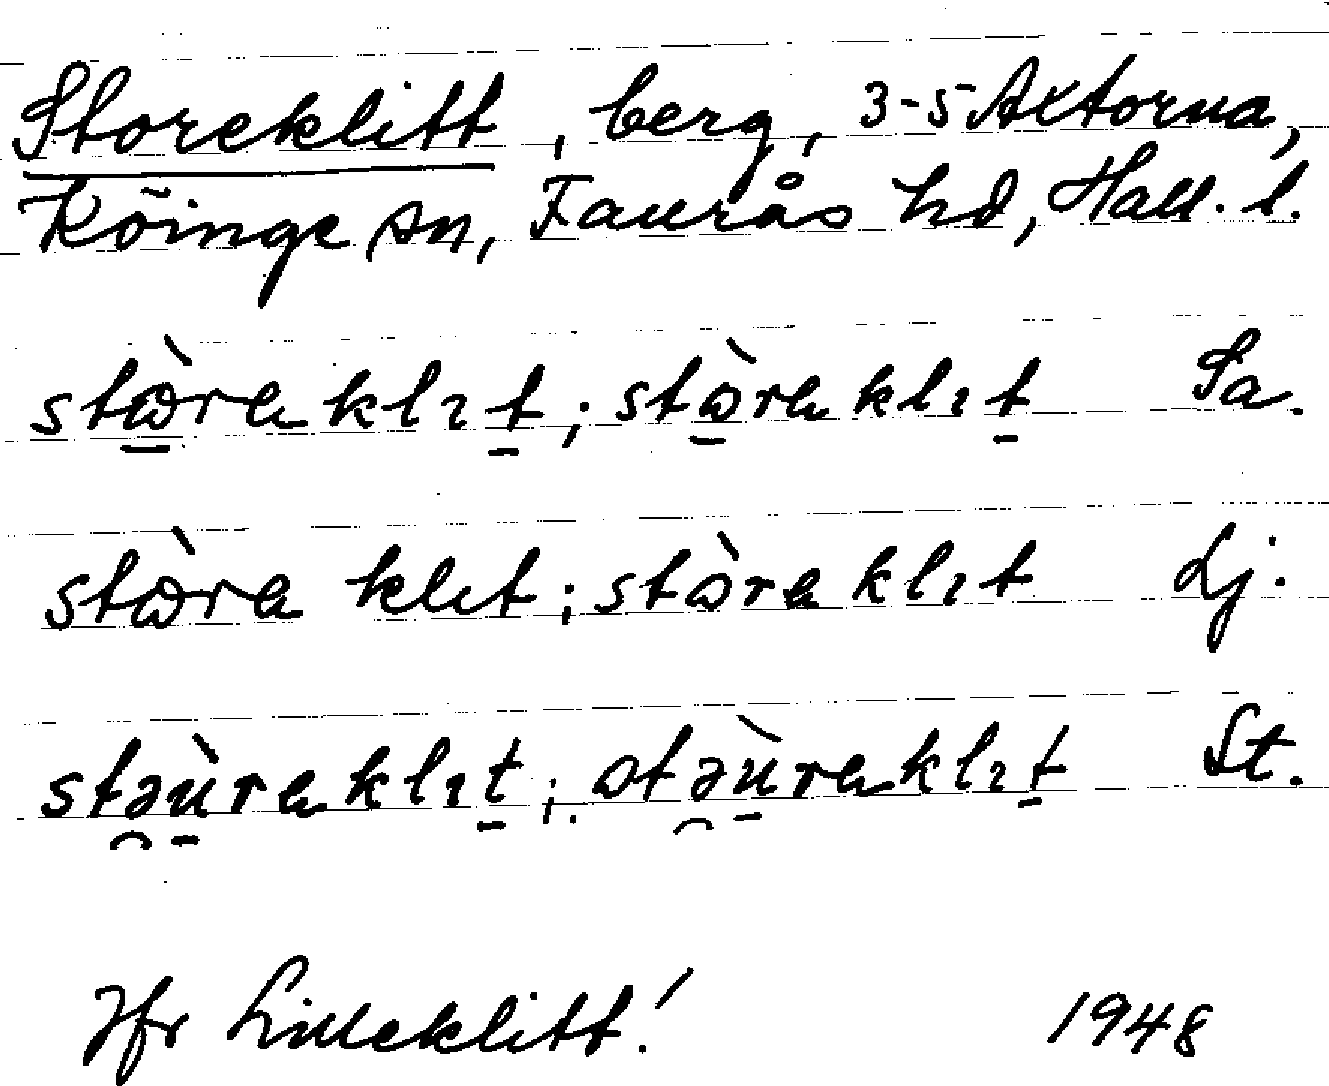 Storeklitt, berg, 3-5 Axtorna,
Köinge sn, Faurås hd, Hall. l.
stⱺ̀ra klıt; stɷ̀ra klıt Sa.
stⱺ̀ra klıt; stɷ̀ra klıt Lj.
stəùra klıt; stəùra klıt St.
Jfr Lilleklitt! 1948